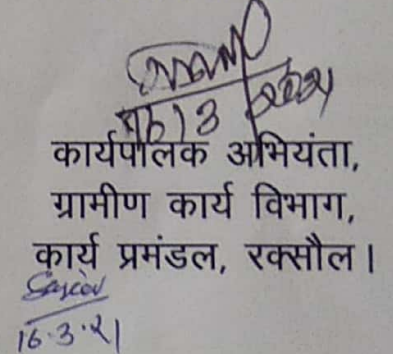 16/3/2021
कार्यपालक अभियंता,
ग्रामीण कार्य विभाग,
कार्य प्रमंडल, रक्सौल।
16.3.21